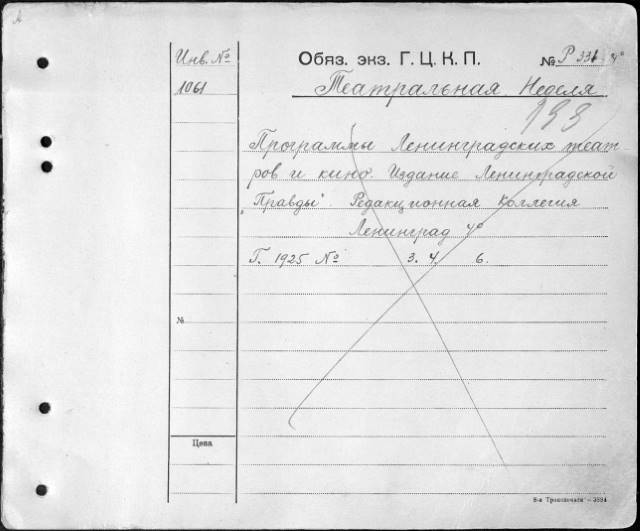 Инв. №
Обяз. экз. Г. Ц. К. П.
№ Р 331 4°
1061
Театральная Неделя
193
Программы Ленинградских театров
ров и кино. Издание Ленинградской
Правды". Редакционная Коллегия
Ленинград 4°
Г. 1925 № 3. 4. 6.
№
Цена
8-я Транспечати — 3884